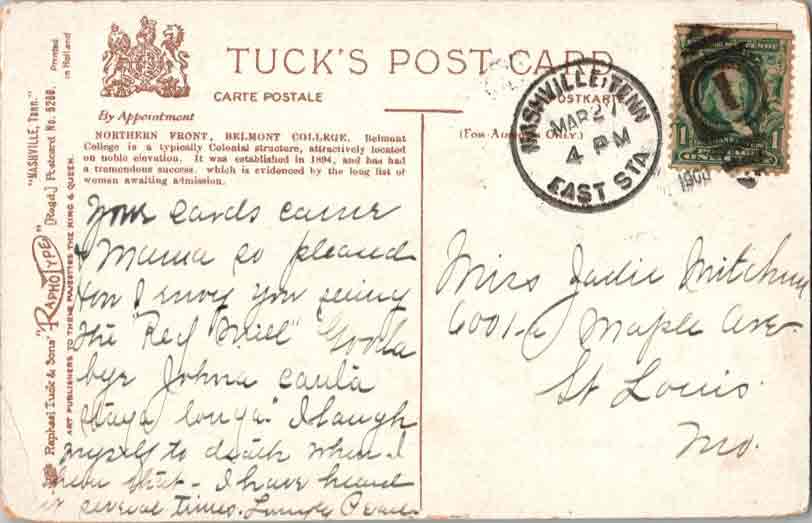 TUCK'S POST CARD
CARTE POSTALE
POSTKARTE
By Appointment
(For Address Only.)
NORTHERN FRONT, BELMONT COLLEGE. Belmont
College is a typically Colonial structure, attractively located
on noble elevation. It was established in 1894, and has had
a tremendous success, which is evidenced by the long list of
women awaiting admission.
"NASHVILLE, Tenn."
Raphael Tuck & Sons' "RAPHOTYPE" (Regd.) Postcard No. 5288. Printed
in Holland
ART PUBLISHERS TO THEIR MAJESTIES THE KING & QUEEN.
NASHVILLE, TENN
MAR 21
4 PM
EAST STA.
1
ONE CENT
Your cards came
Mama so pleased
How I envy you seeing
the "Red Mill" "Gooda
bye Johna canta
staya longa." I laugh
myself to death when I
hear that - I have heard
it several times.
Miss Sadie
6001-a Maple Ave
St Louis.
Mo.